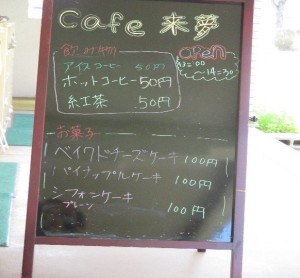 Cafe 来夢
飲み物
アイスコーヒー 50円
ホットコーヒー 50円
紅茶 50円
OPEN
13:00
14:30
お菓子
ベイクドチーズケーキ 100円
パイナップルケーキ 100円
シフォンケーキ
プレーン 100円